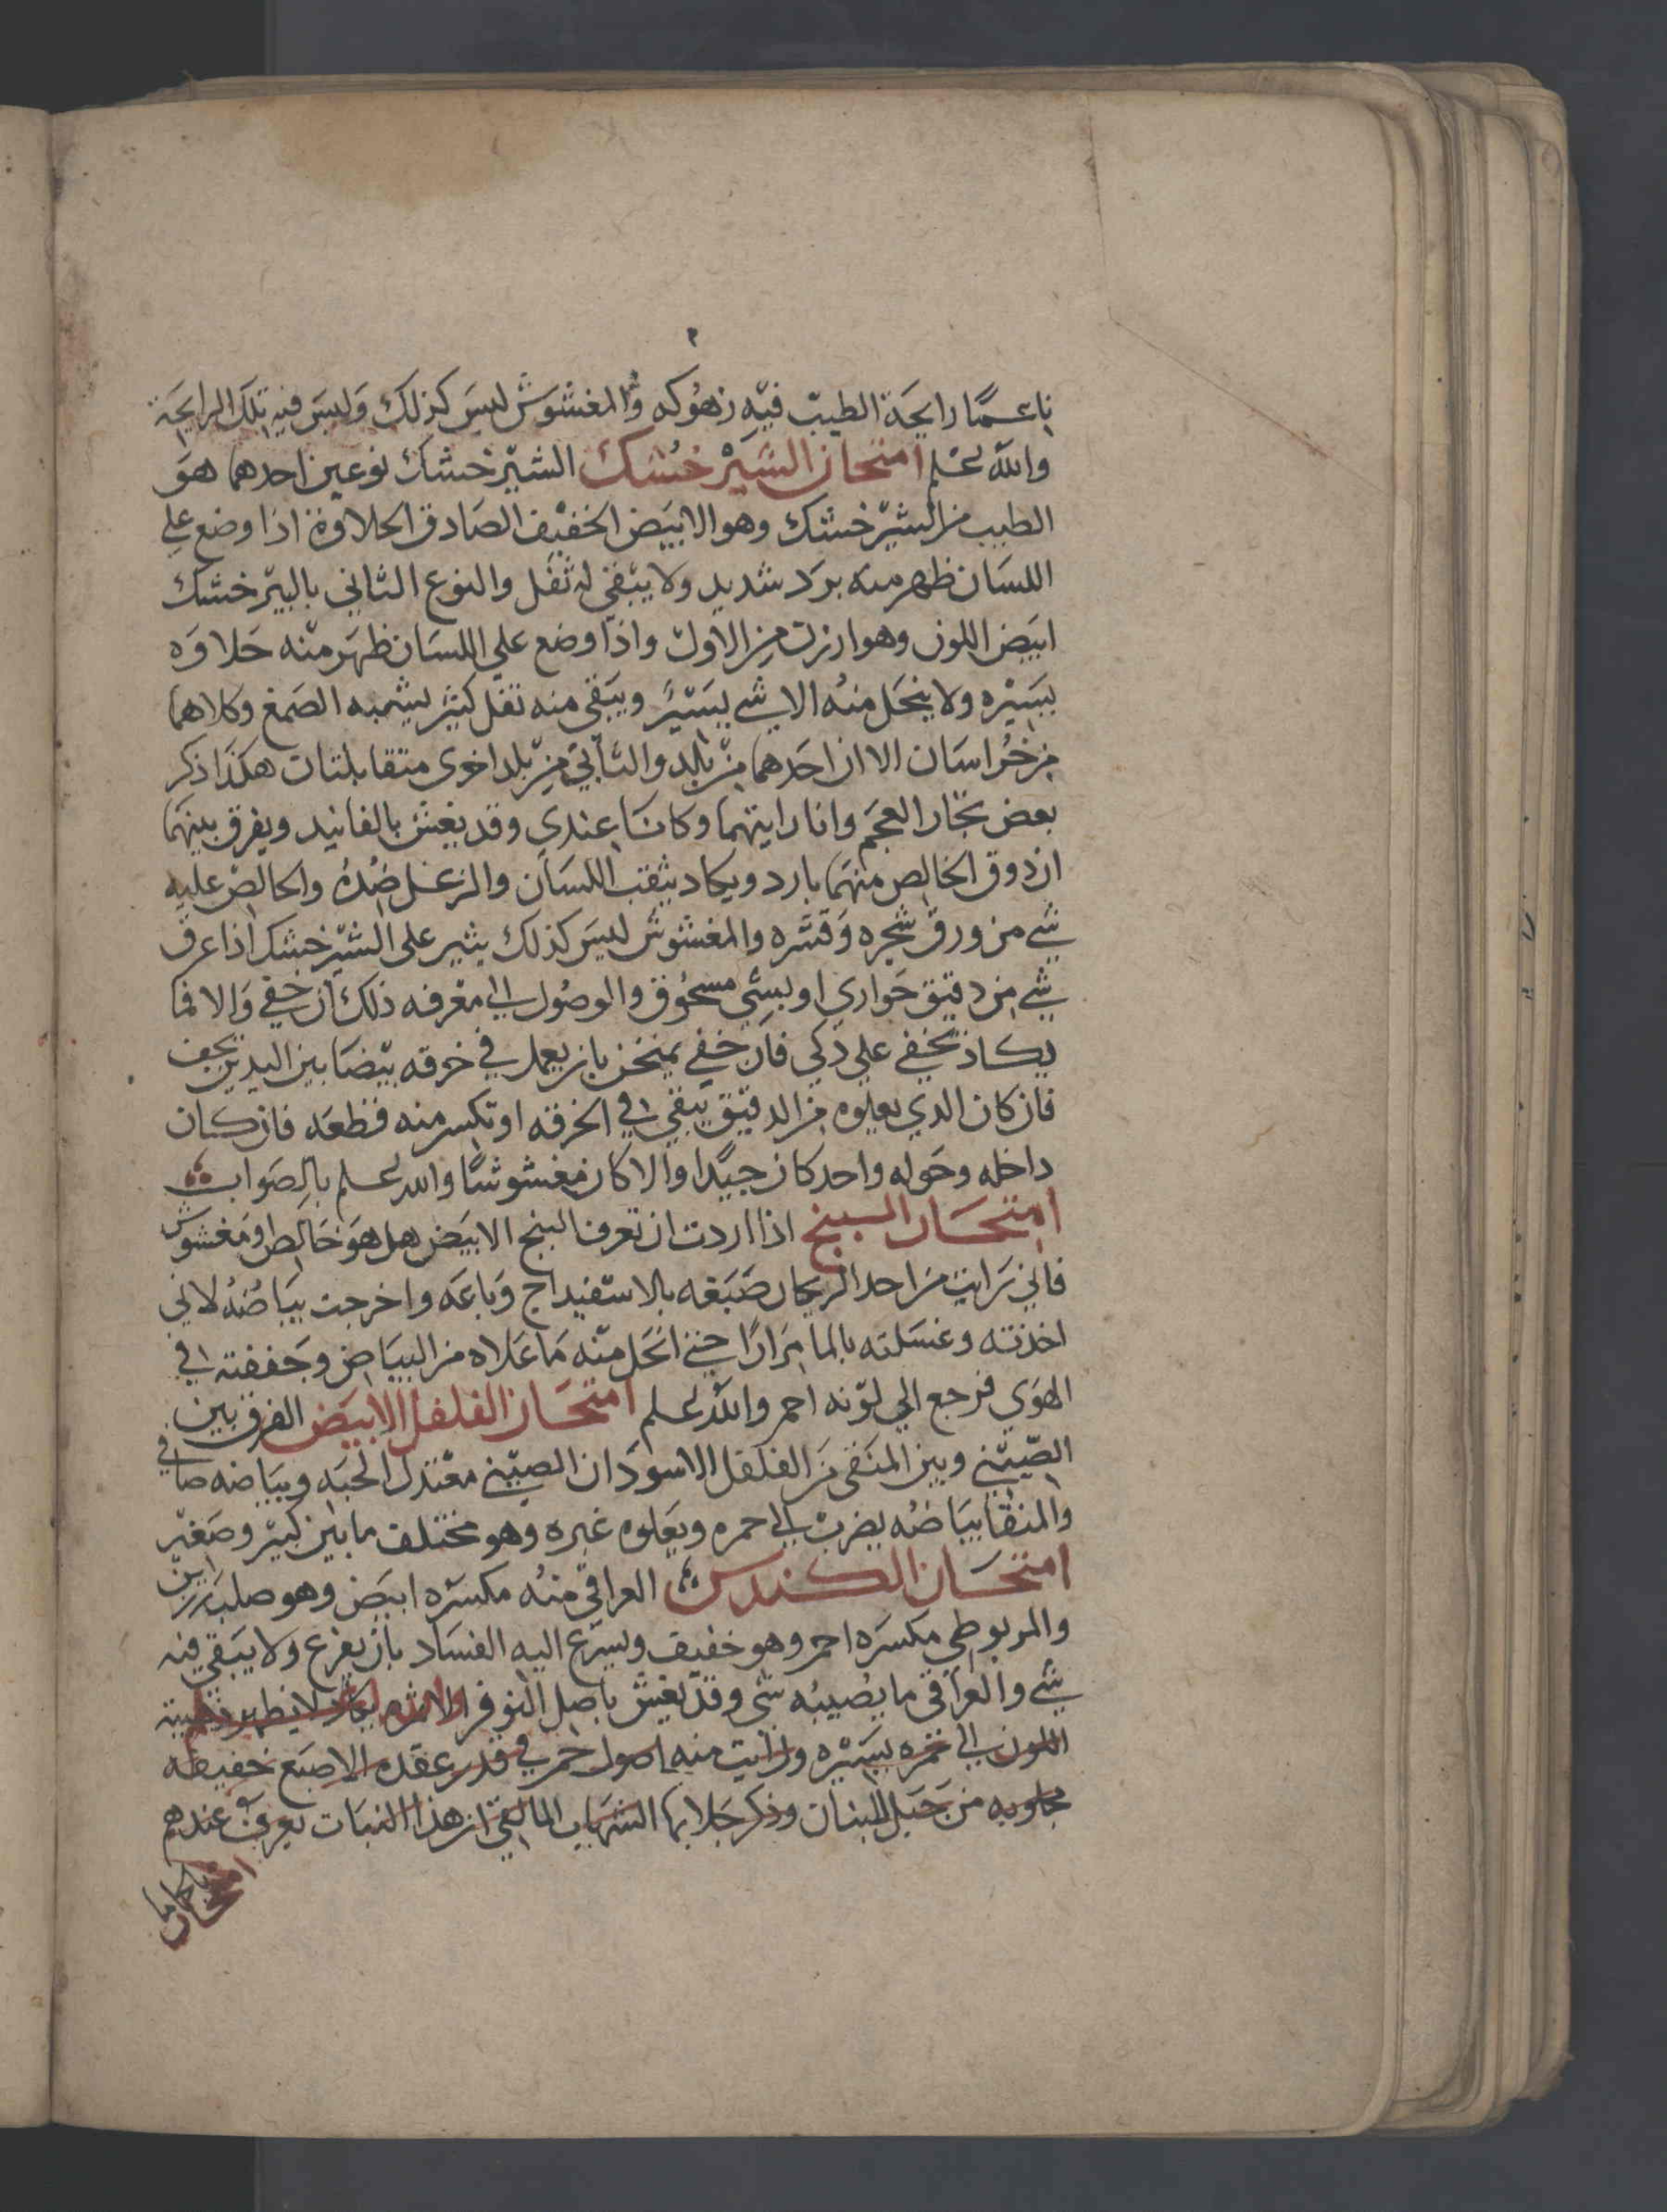 ناعما رايحة الطيب فيه زهوكه والمغشوش ليس كذلك وليس فيه تلك الرايحة
والله اعلم امتحان الشير خشك الشير خشك نوعين احدهما هو
الطيب من الشير خشك وهو الابيض الخفيف الصادق الحلاوة اذا وضع على
اللسان ظهر منه برد شديد ولا يبقى له ثفل والنوع الثاني بالبير خشك
ابيض اللون وهو ارزن من الاول واذا وضع على اللسان ظهر منه حلاوه
يسيره ولا ينحل منه الا شي يسير ويبقى منه ثفل كثير يشبه الصمغ وكلاهما
من خراسان الا ان احدهما من بلد والثاني من بلد اخرى متقابلتان هكذا ذكر
بعض تجار العجم وانا رايتهما وكانا عندي وقد يغش بالفانيد ويفرق بينهما
ان ذوق الخالص منهما بارد ويكاد يثقب اللسان والزغل ضده والخالص عليه
شي من ورق شجره وقشره والمغشوش ليس كذلك يثير على الشير خشك اذا عرف
شي من دقيق حواري او بشي مسحوق والوصول الى معرفه ذلك ان خفي والا فما
يكاد يخفى على ذكي فان خفي يمتحن بان يعمل في خرقه بيضا بين اليدين يجف
فان كان الذي يعلوه من الدقيق يبقى في الخرقه او تكسر منه قطعه فان كان
داخله وحوله واحد كان جيدا والا كان مغشوشا والله اعلم بالصواب
امتحان البنج اذا اردت ان تعرف البنج الابيض هل هو خالص او مغشوش
فاني رايت من احد الريحان صبغه بالاسفيداج وباعه واخرجت بياضه لاني
اخذته وغسلته بالما مرارا حتى انحل منه ما علاه من البياض وجففته في
الهوي فرجع الي لونه احمر والله اعلم امتحان الفلفل الابيض الفرق بين
الصيني وبين المنقى من الفلفل الاسود ان الصيني معتدل الحبه وبياضه صافي
والمنقا بياضه يضرب الى حمره ويعلوه غبره وهو مختلف ما بين كبير وصغير
امتحان الكندس العراقي منه مكسره ابيض وهو صلب رزين
والمربوطي مكسره احمر وهو خفيف ويسرع اليه الفساد بان يفرغ ولا يبقى فيه
شي والعراقي ما يصيبه شي وقد يغش باصل النوفر
اللون الى حمره يسيره ورايت منه اصول حمر في قدر عقده الاصبع خفيفه
مجلوبه من جبل لبنان وذكر جلابها الشهاب المالقي ان هذا النبات يعرف عندهم
امتحان